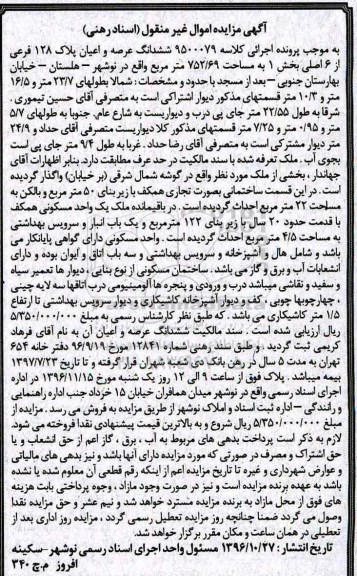 آگهی مزایده اموال غیر منقول (اسناد رهنی)
به موجب پرونده اجرائی کلاسه ۹۵۰۰۰۷۹ ششدانگ عرصه و اعیان پلاک ۱۲۸ فرعی
از ۶ اصلی بخش ۱ به مساحت ۷۵۲/۶۹ متر مربع واقع در نوشهر – هلستان – خیابان
بهارستان جنوبی – بعد از مسجد با حدود و مشخصات : شمالا بطولهای ۲۳/۷ متر و ۱۶/۵
متر و ۱۰/۳ متر قسمتهای مذکور دیوار اشتراکی است به متصرفی آقای حسین تیموری .
شرقا به طول ۲۲/۵۵ متر جای پی درب و دیواریست به شارع عام. جنوبا به طولهای ۵/۷
متر و ۰/۹۵ متر و ۷/۲۵ متر قسمتهای مذکور کلا دیواریست متصرفی آقای حداد و ۲۴/۹
متر دیوار مشترکی است به متصرفی آقای رضا حداد . غربا به طول ۹/۴ متر جای پی است
بجوی آب . ملک تعرفه شده با سند مالکیت در حد عرف مطابقت دارد. بنابر اظهارات آقای
جهاندار ، بخشی از ملک مورد نظر واقع در گوشه شمال شرقی (بر خیابان) واگذار گردیده
است . در این قسمت ساختمانی بصورت تجاری همکف با زیر بنای ۵۰ متر مربع و بالکن به
مساحت ۲۲ متر مربع احداث گردیده است . در باقیمانده ملک یک واحد مسکونی همکف
با قدمت حدود ۲۰ سال با زیر بنای ۱۲۲ مترمربع و یک باب انبار و سرویس بهداشتی
به مساحت ۴/۵ متر مربع احداث گردیده است . واحد مسکونی دارای گواهی پایانکار می
باشد و شامل هال و آشپزخانه و سرویس بهداشتی و سه باب اتاق و ایوان بوده و دارای
انشعابات آب و برق و گاز می باشد . ساختمان مسکونی از نوع بنایی ، دیوار ها تعمیر سیاه
و سفید و نقاشی میباشد درب ورودی و پنجره ها آلومینیومی درب اتاقها سه لایه چینی
، چهارچوبها چوبی ، کف و دیوار آشپزخانه کاشیکاری و دیوار سرویس بهداشتی تا ارتفاع
۱/۵ متر کاشیکاری می باشد . که طبق نظر کارشناس رسمی به مبلغ ۵/۳۵۰/۰۰۰/۰۰۰
ریال ارزیابی شده است . سند مالکیت ششدانگ عرصه و اعیان آن به نام آقای فرهاد
کریمی ثبت گردید و طبق سند رهنی شماره ۱۲۸۴۱ مورخ ۹۶/۹/۱۹ دفتر خانه ۶۵۴
تهران به مدت ۵ سال در رهن بانک دی شعبه تهران قرار گرفته و تا تاریخ ۱۳۹۷/۷/۲۳
بیمه میباشد . پلاک فوق از ساعت ۹ الی ۱۲ روز یک شنبه مورخ ۱۳۹۶/۱۱/۱۵ در اداره
اجرای اسناد رسمی واقع در نوشهر میدان همافران خیابان ۱۵ خرداد جنب اداره راهنمایی
و رانندگی – اداره ثبت اسناد و املاک نوشهر از طریق مزایده به فروش می رسد . مزایده از
مبلغ ۵/۳۵۰/۰۰۰/۰۰۰ ریال شروع و به بالاترین قیمت پیشنهادی نقدا فروخته می شود.
لازم به ذکر است پرداخت بدهی های مربوط به آب ، برق ، گاز اعم از حق انشعاب و یا
حق اشتراک و مصرف در صورتی که مورد مزایده دارای آنها باشد و نیز بدهی های مالیاتی
و عوارض شهرداری و غیره تا تاریخ مزایده اعم از اینکه رقم قطعی آن معلوم شده یا نشده
باشد به عهده برنده مزایده است و نیز در صورت وجود مازاد ، وجوه پرداختی بابت هزینه
های فوق از محل مازاد به برنده مزایده مسترد خواهد شد و نیم عشر و حق مزایده نقدا
وصول می گردد ضمنا چنانچه روز مزایده تعطیل رسمی گردد ، مزایده روز اداری بعد از
تعطیلی در همان ساعت و مکان مقرر برگزار خواهد شد.
تاریخ انتشار : ۱۳۹۶/۱۰/۲۷ مسئول واحد اجرای اسناد رسمی نوشهر –سکینه
افروز م.چ ۳۴۰